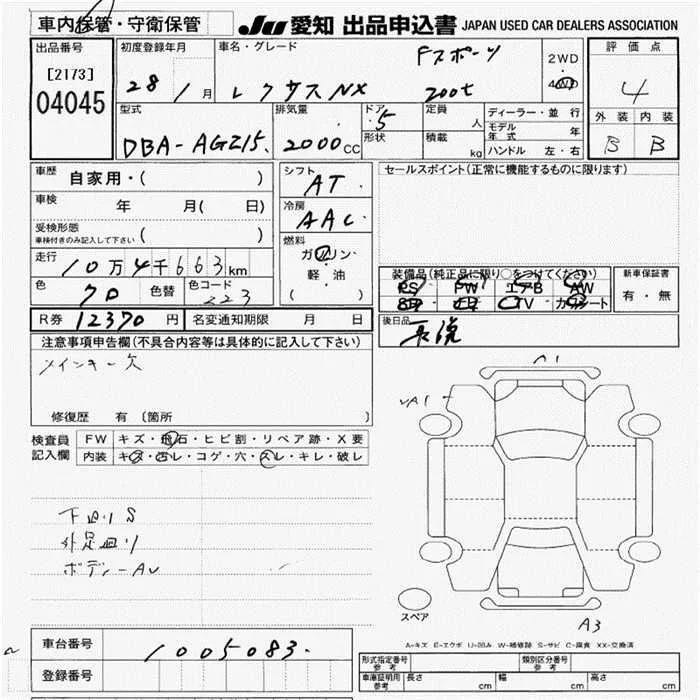 車内保管・守衛保管
JU 愛知 出品申込書 JAPAN USED CAR DEALERS ASSOCIATION
出品番号
[2173]
04045
初度登録年月
28 / 1 月
車名・グレード
レクサスNX
Fスポーツ
200t
2WD
4WD
評価点
4
外装 内装
B B
型式
DBA-AGZ15
排気量
2000 CC
ドア
5
形状
定員
人
積載
kg
ディーラー・並行
モデル年式 年
ハンドル 左・右
車歴
自家用・( )
車検
年 月( 日)
受検形態
車検付きのみ記入して下さい ( )
走行
10万4千663km
色
70
色替
色コード
223
シフト
AT
冷房
AAC
燃料
ガソリン
軽・油
( )
セールスポイント(正常に機能するものに限ります)
装備品(純正品に限り○をつけてください)
PS PW エアB AW
SR TV
新車保証書
有・無
後日品
R券 12370 円
名変通知期限 月 日
注意事項申告欄(不具合内容等は具体的に記入して下さい)
メインキー欠
修復歴 有 〔箇所 〕
検査員
記入欄
FW キズ・飛石・ヒビ割・リペア跡・X要
内装 キズ・汚レ・コゲ・穴・スレ・キレ・破レ
下回りS
外足回り
A1
スペア
A3
A-キズ E-エクボ U-凹み W-補修跡 S-サビ C-腐食 XX-交換済
車台番号
1005083
登録番号
形式指定番号
参考
類別区分番号
参考
車庫証明用
参考
長さ cm
幅 cm
高さ cm